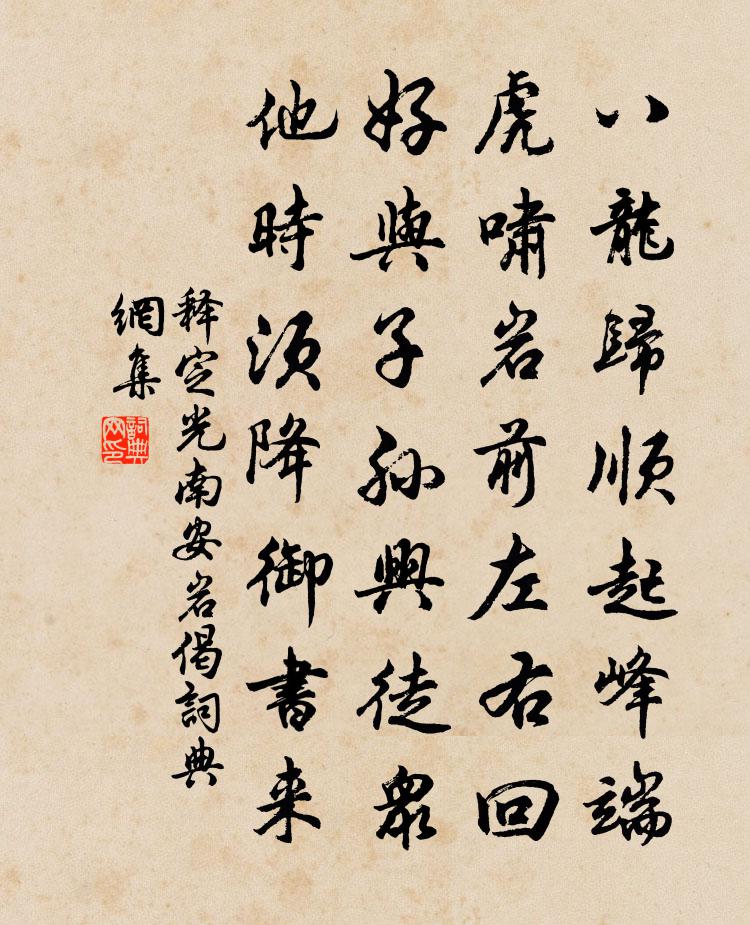 八龍歸順起峰端
虎嘯岩前左右回
好與子孫興徒眾
他時須降御書来
释定光南安岩偈詞典
網集
詞典网印